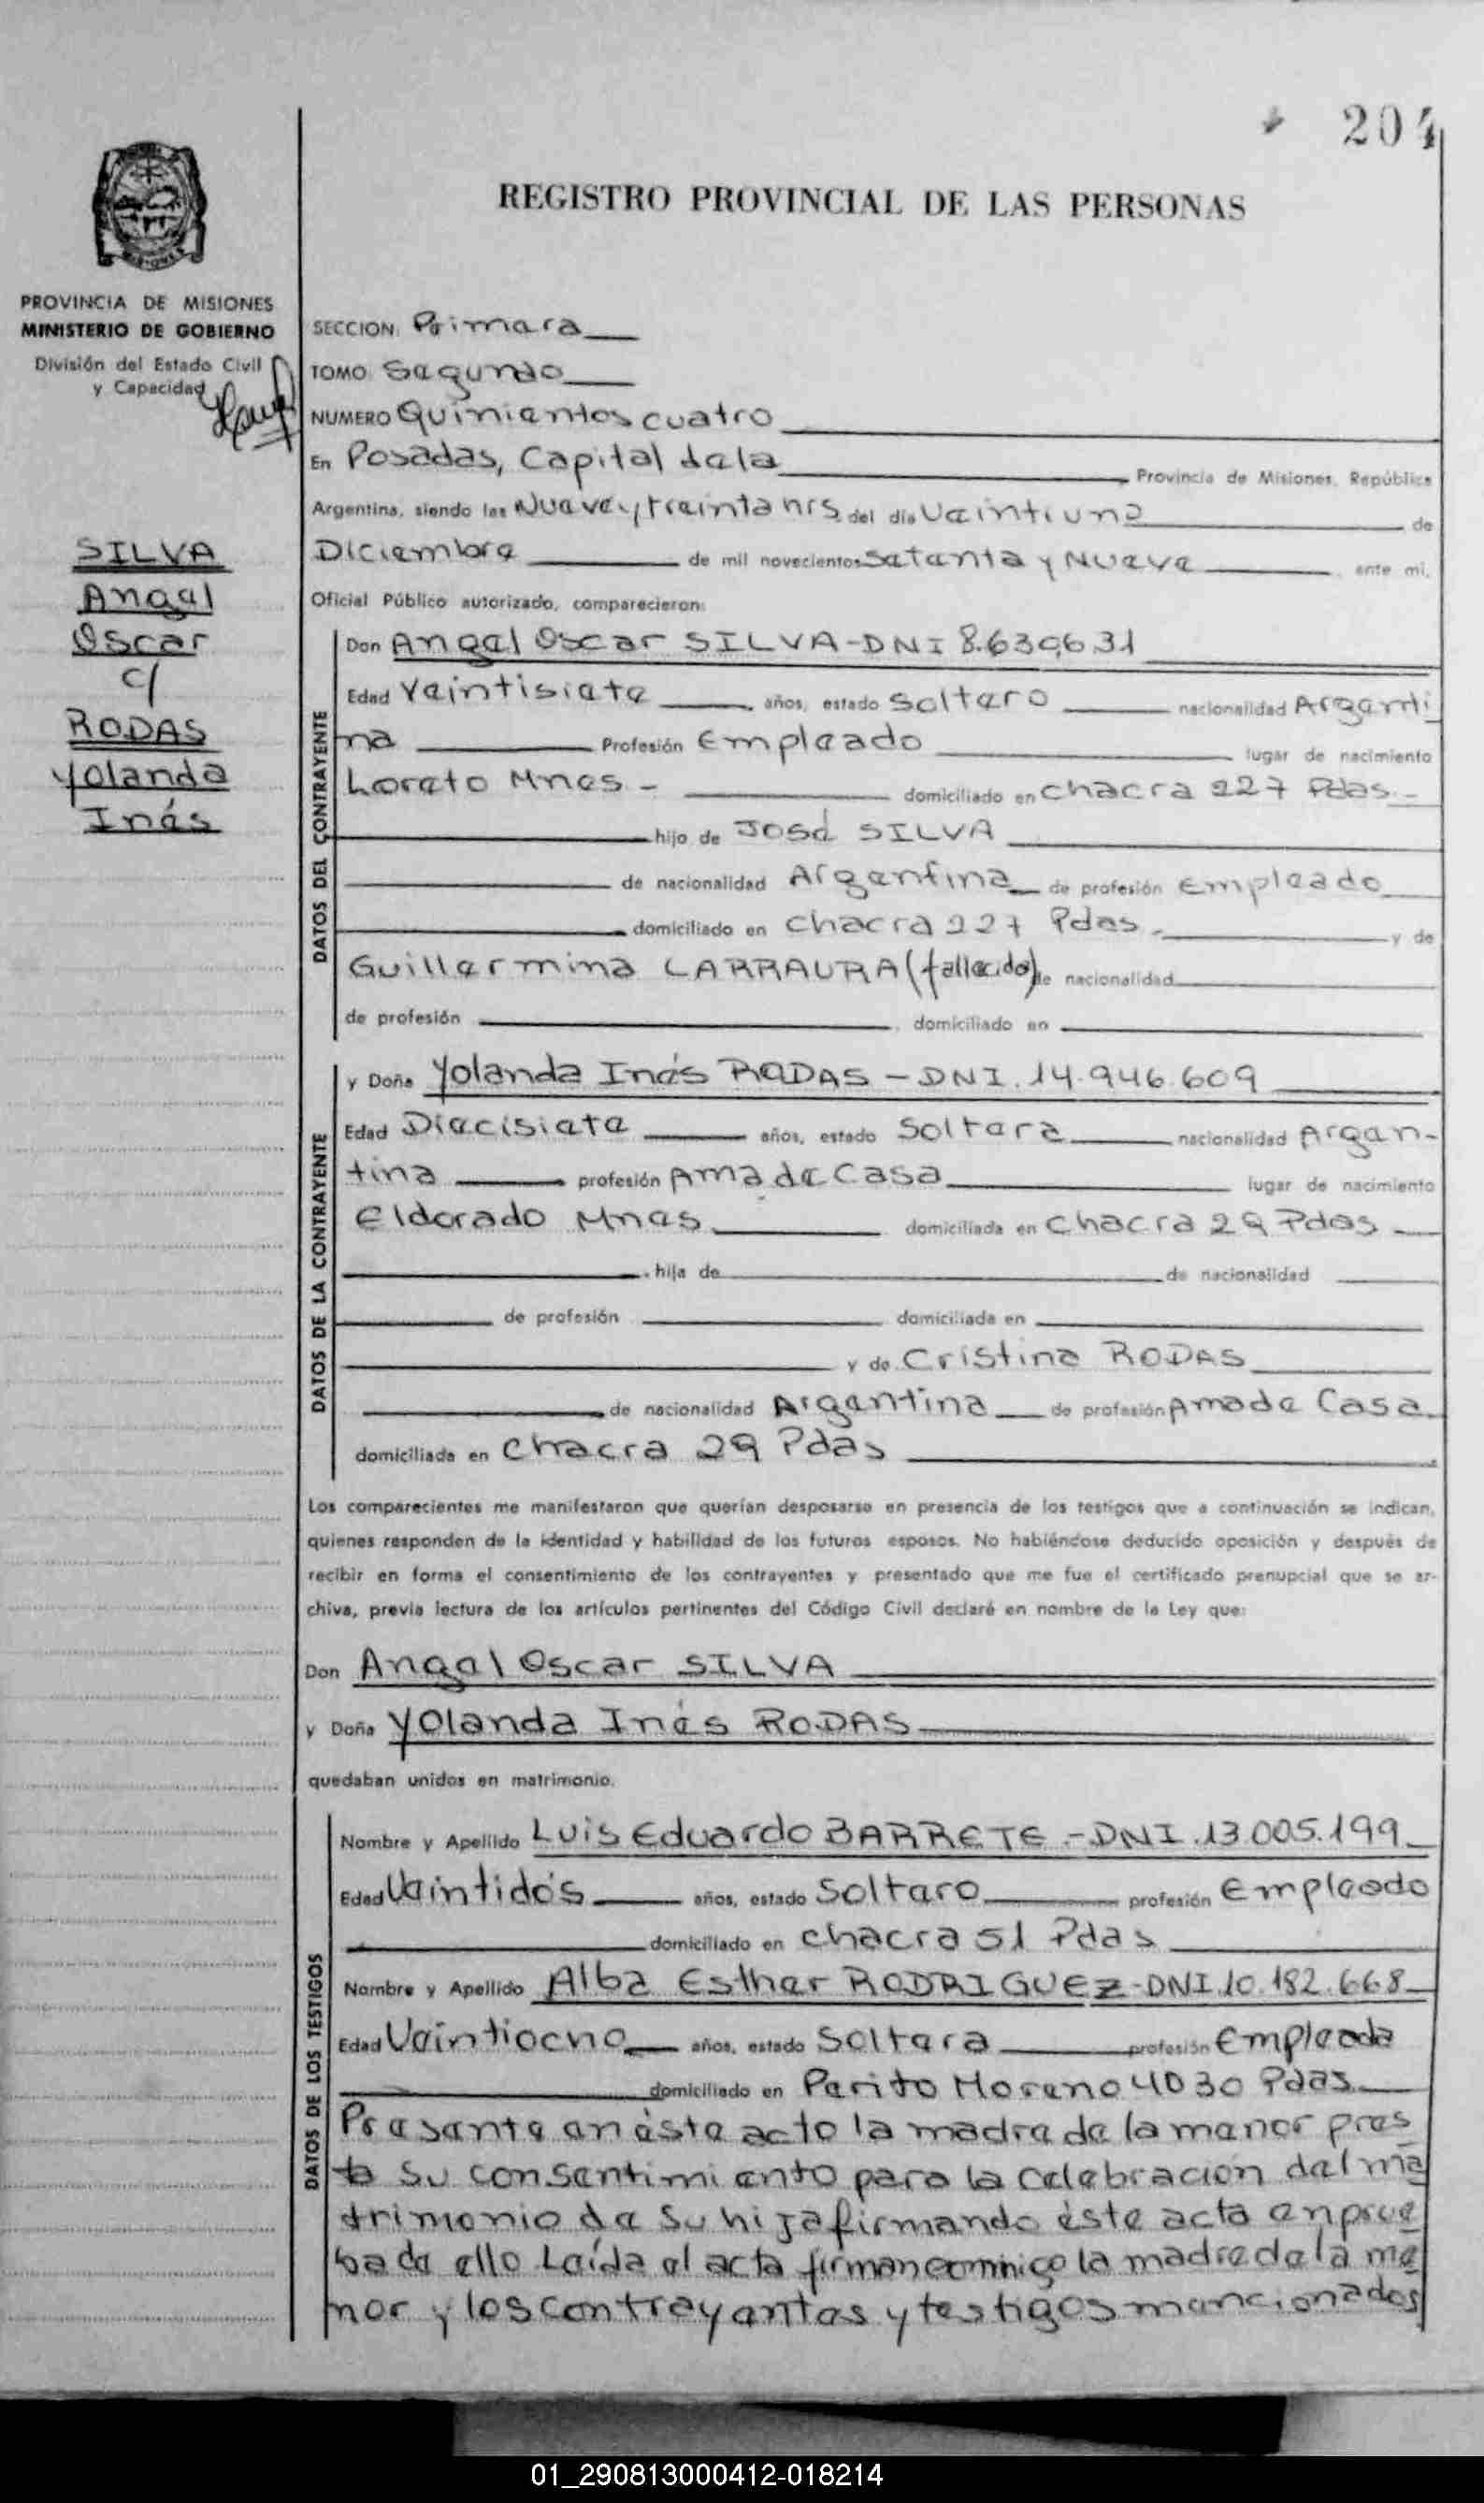 204
REGISTRO PROVINCIAL DE LAS PERSONAS
PROVINCIA DE MISIONES
MINISTERIO DE GOBIERNO
División del Estado Civil
y Capacidad
SILVA
Angel
Oscar
c/
RODAS
Yolanda
Inés
SECCION: Primera
TOMO Segundo
NUMERO Quinientos cuatro
En Posadas, Capital dela Provincia de Misiones, República
Argentina, siendo las Nueve y treinta hrs. del día Veintiuno de
Diciembre de mil novecientos Setenta y Nueve ante mi,
Oficial Público autorizado, comparecieron:
DATOS DEL CONTRAYENTE
Don Angel Oscar SILVA-DNI 8.630.631
Edad Veintisiete años, estado Soltero nacionalidad Argenti
na Profesión Empleado lugar de nacimiento
Loreto Mnes - domiciliado en chacra 227 Pdas -
hijo de José SILVA
de nacionalidad Argentina de profesión Empleado
domiciliado en chacra 227 Pdas. y de
Guillermina LARRAURA (fallecido) de nacionalidad
de profesión domiciliado en
DATOS DE LA CONTRAYENTE
y Doña Yolanda Inés RODAS - DNI. 14.946.609
Edad Diecisiete años, estado Soltera nacionalidad Argen-
tina profesión Ama de Casa lugar de nacimiento
Eldorado Mnes domiciliada en Chacra 29 Pdas
hija de de nacionalidad
de profesión domiciliada en
y de Cristina RODAS
de nacionalidad Argentina de profesión Ama de Casa
domiciliada en Chacra 29 Pdas
Los comparecientes me manifestaron que querían desposarse en presencia de los testigos que a continuación se indican,
quienes responden de la identidad y habilidad de los futuros esposos. No habiéndose deducido oposición y después de
recibir en forma el consentimiento de los contrayentes y presentado que me fue el certificado prenupcial que se ar-
chiva, previa lectura de los artículos pertinentes del Código Civil declaré en nombre de la Ley que:
Don Angel Oscar SILVA
y Doña Yolanda Inés RODAS
quedaban unidos en matrimonio.
DATOS DE LOS TESTIGOS
Nombre y Apellido Luis Eduardo BARRETE - DNI. 13.005.199
Edad Veintidós años, estado Soltero profesión Empleado
domiciliado en chacra 51 Pdas
Nombre y Apellido Alba Esther RODRIGUEZ-DNI. 10.182.668
Edad Veintiocho años, estado Soltera profesión Empleada
domiciliado en Perito Moreno 4030 Pdas
Presente en éste acto la madre de la menor pres
ta su consentimiento para la celebración del ma
trimonio de su hija firmando éste acta en prue
ba de ello Leída el acta firman conmigo la madre de la me
nor y los contrayentes y testigos mencionados
01_290813000412-018214